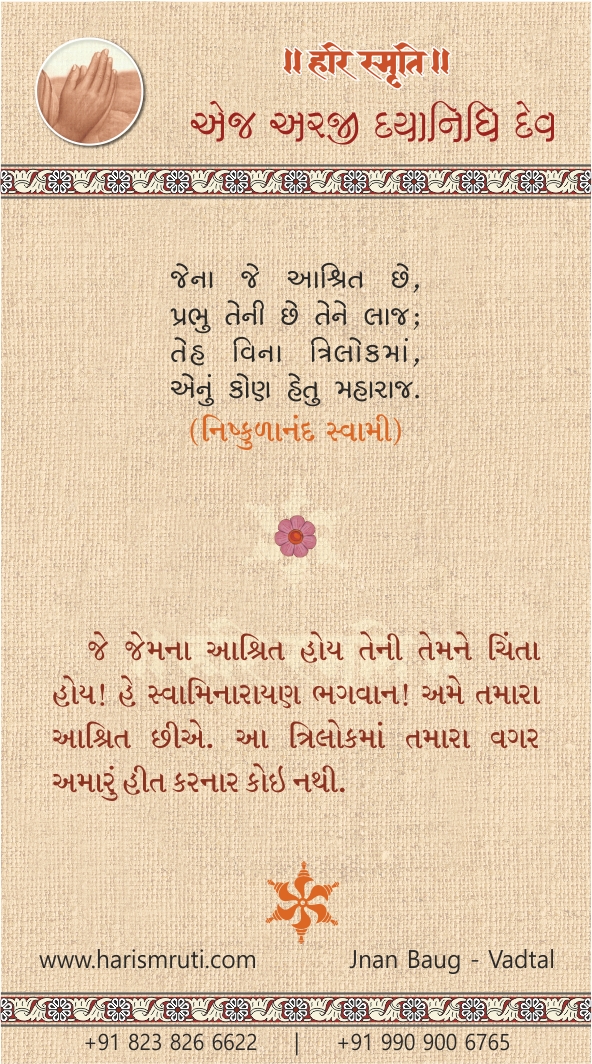 ॥ હરિ સ્મૃતિ ॥
એજ અરજી દયાનિધિ દેવ
જેના જે આશ્રિત છે,
પ્રભુ તેની છે તેને લાજ;
તેહ વિના ત્રિલોકમાં,
એનું કોણ હેતુ મહારાજ.
(નિષ્કુળાનંદ સ્વામી)
જે જેમના આશ્રિત હોય તેની તેમને ચિંતા
હોય! હે સ્વામિનારાયણ ભગવાન! અમે તમારા
આશ્રિત છીએ. આ ત્રિલોકમાં તમારા વગર
અમારું હીત કરનાર કોઇ નથી.
www.harismruti.com Jnan Baug - Vadtal
+91 823 826 6622 | +91 990 900 6765